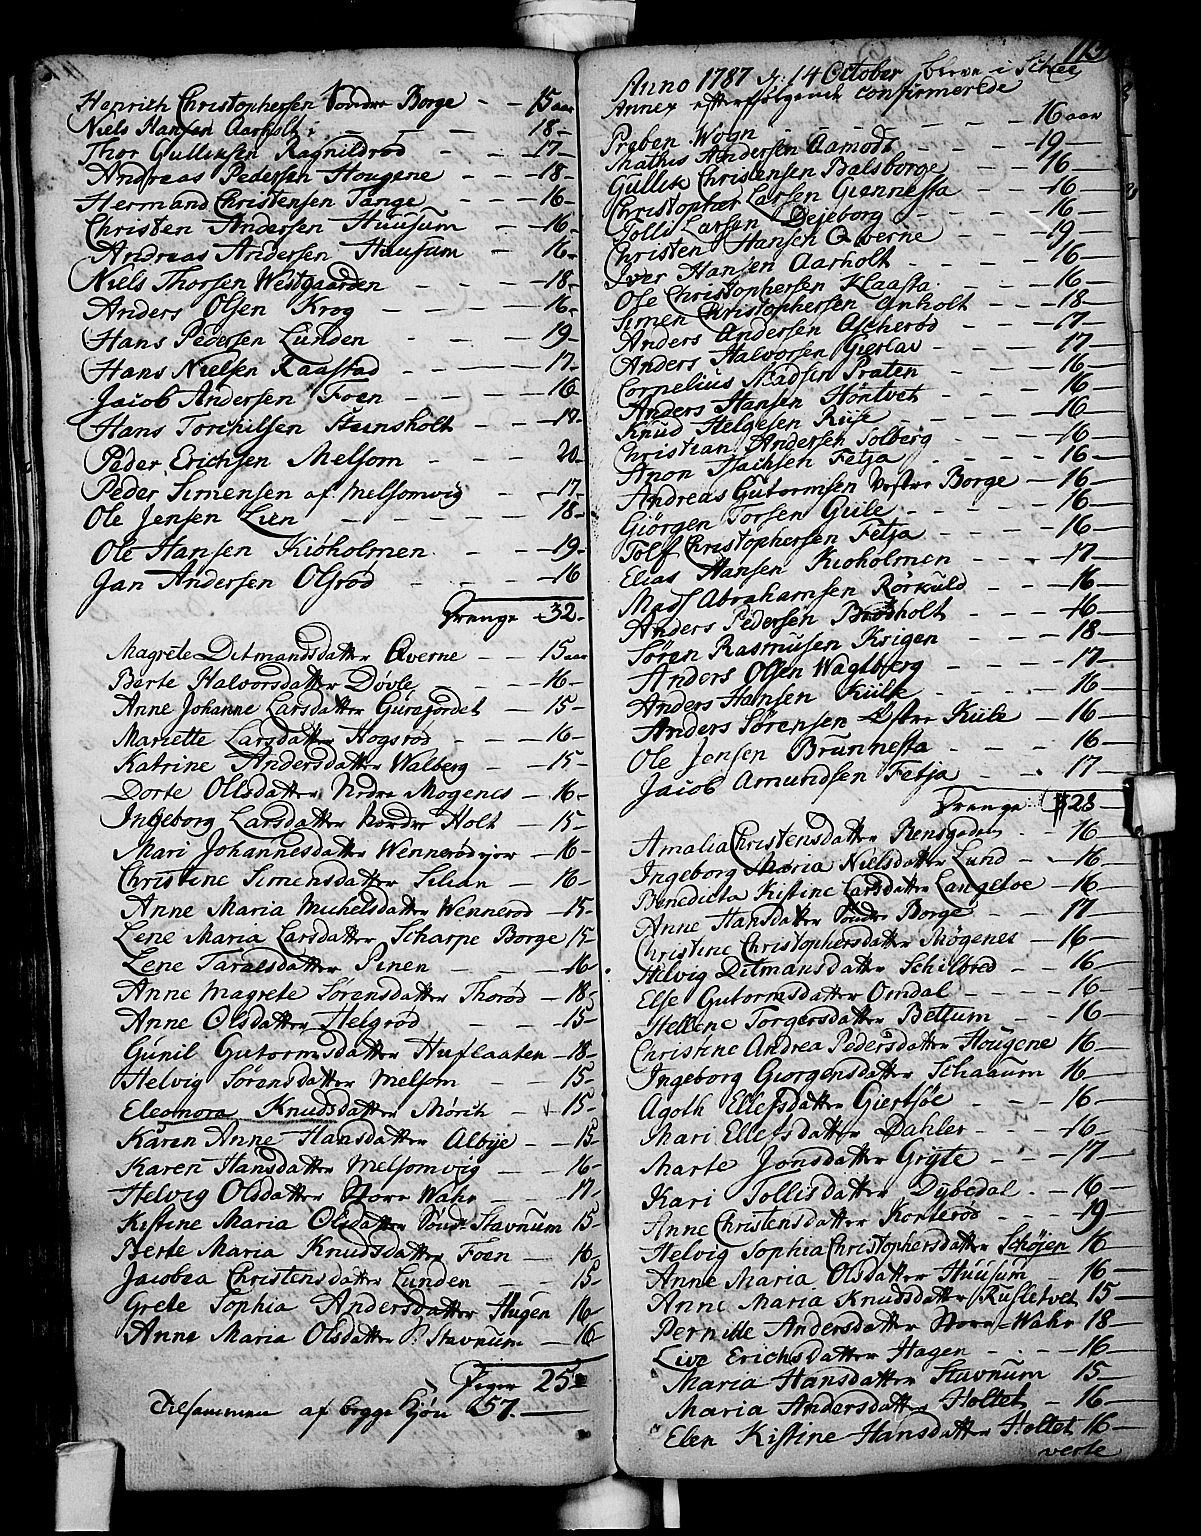 Henrich Christophersen Söndre Borge - - 15 aar
Niels Hansen Aarholt - - - 18 -
Thor Gullixsen Ragnildröd - - - 17 -
Andreas Pedersen Hougene - - - 18 -
Hermand Christensen Tange - - - 16 -
Christen Andersen Huusum - - 16 -
Andreas Andersen Huusum - - 16 -
Niels Thorsen Westgaarden - - - 18 -
Anders Olsen Krog - - - 16 -
Hans Pedersen Lunden - - - 19 -
Hans Nielsen Raastad - - - 17 -
Jacob Andersen Foen - - - 16
Hans Torchilsen Steinsholt - - - 17 -
Peder Erichsen Melsom - - - 20 -
Peder Simensen af Melsomvig - - 17 -
Ole Jensen Lien - - - 18 -
Ole Hansen Kiöholmen - - - 19 -
Jan Andersen Olsröd - - - 16
Drenge 32 -
Magrete Ditmandsdatter Qverne - - 15 aar
Berte Halvorsdatter Døvle - - - 16 -
Anne Johanne Larsdatter Guragiordet - 15 -
Mariette Larsdatter Hogsröd - - - 16 -
Katrine Andersdatter Walberg - - 15 -
Dorte Olsdatter Nordre Mogenes - 16 -
Ingeborg Larsdatter Nordre Holt - 15 -
Mari Johannesdatter Wenneröd - 16 -
Christine Simensdatter Selian - 16 -
Anne Maria Michelsdatter Wenneröd - 15 -
Lene Maria Larsdatter Scharpe Borge 15 -
Lene Taralsdatter Pinen - - 16
Anne Magrete Sörensdatter Thoröd - 18 -
Anne Olsdatter Helgröd - - 15 -
Gunil Gutormsdatter Huflaaten - 18 -
Helvig Sörensdatter Melsom - - 15 -
Eleonora Knudsdatter Mörch - 15 -
Karen Anne Hansdatter Albye - - 15 -
Karen Hansdatter Melsomvig - - 16 -
Helvig Olsdatter Store Wahr - - 17 -
Kistine Maria Olsdatter Sönd: Stavnum 15
Berte Maria Knudsdatter Foen - 16 -
Jacobaa Christensdatter Lunden - - 15 -
Grete Sophia Andersdatter Hugen 16
Anne Maria Olsdatter S: Stavnum - 16 -
Piger 25
Tilsammen af begge Kjön 57. -
113
Anno 1787 d: 14 October bleve i Schee
Annex efterfølgende confirmerede
Preben Wogn - - - 16 aar
Mathis Andersen Aamodt - - - 19 -
Gullich Christensen Balsborge - 16 -
Christopher Larsen Giennesta - - 16 -
Jolli Larsen Dejeborg - - - 16 -
Christen Hansen Qverne - - - 19 -
Iver Hansen Aarholt - - - 16 -
Ole Christophersen Klaasta - - 16 -
Simen Christophersen Anholt - - 18 -
Anders Andersen Ascheröd - - 17 -
Anders Halvorsen Gierlav - - 17 -
Cornelius Madsen Praten - - 16 -
Anders Hansen Höntvet - - 16 -
Knud Helgesen Riise - - 16 -
Christian Andersen Solberg - - 16 -
Anon Isachsen Fetja - - 16 -
Andreas Gutormsen Vestre Borge - 16 -
Giörgen Torsen Giile - - 16 -
Tolf Christophersen Fetja - - 16 -
Elias Hansen Kioholmen - - 17 -
Mads Abrahamsen Rörkuld - - 16 -
Anders Pedersen Brödholt - - 16 -
Sören Rasmusen Krigen - - 18 -
Anders Olsen Waglberg - - 17 -
Anders Hansen Kiile - - 16 -
Anders Sörensen Østre Kiile - 16 -
Ole Jensen Brunnesta - - 16 -
Jacob Amundsen Fetja - - 17 -
Drenge 28 -
Amalia Christensdatter Rensgaden - 16 -
Ingeborg Maria Nielsdatter Lund - 16 -
Benedicta Kistine Larsdatter Langelve - 16 -
Anne Hansdatter Söndre Borge - - 17 -
Christine Christophersdatter Mögenes - 16 -
Hilvig Ditmansdatter Schilbred - - 16 -
Else Gutormsdatter Omdal - - - 16 -
Hellene Torgersdatter Bettum - - 16 -
Christine Andrea Pedersdatter Hougene 16 -
Ingeborg Giorgensdatter Schaaum 16 -
Agoth Ellefsdatter Giertsöe - - 16 -
Mari Ellefsdatter Dahler - - 16 -
Marte Jonsdatter Gryte - - 17 -
Kari Tollisdatter Dybedal - 16 -
Anne Christensdatter Korteröd - - 19 -
Helvig Sophia Christophersdatter Schöjen 16 -
Anne Maria Olsdatter Huusum - 16 -
Anne Maria Knudsdatter Rusletvet 15 -
Pernille Andersdatter Store Wahr 18 -
Live Erichsdatter Hagen - - - 16 -
Maria Hansdatter Stavnum 15 -
Maria Andersdatter Holtet - 16 -
Elen Kistine Hansdatter Holtet 16 -
verte